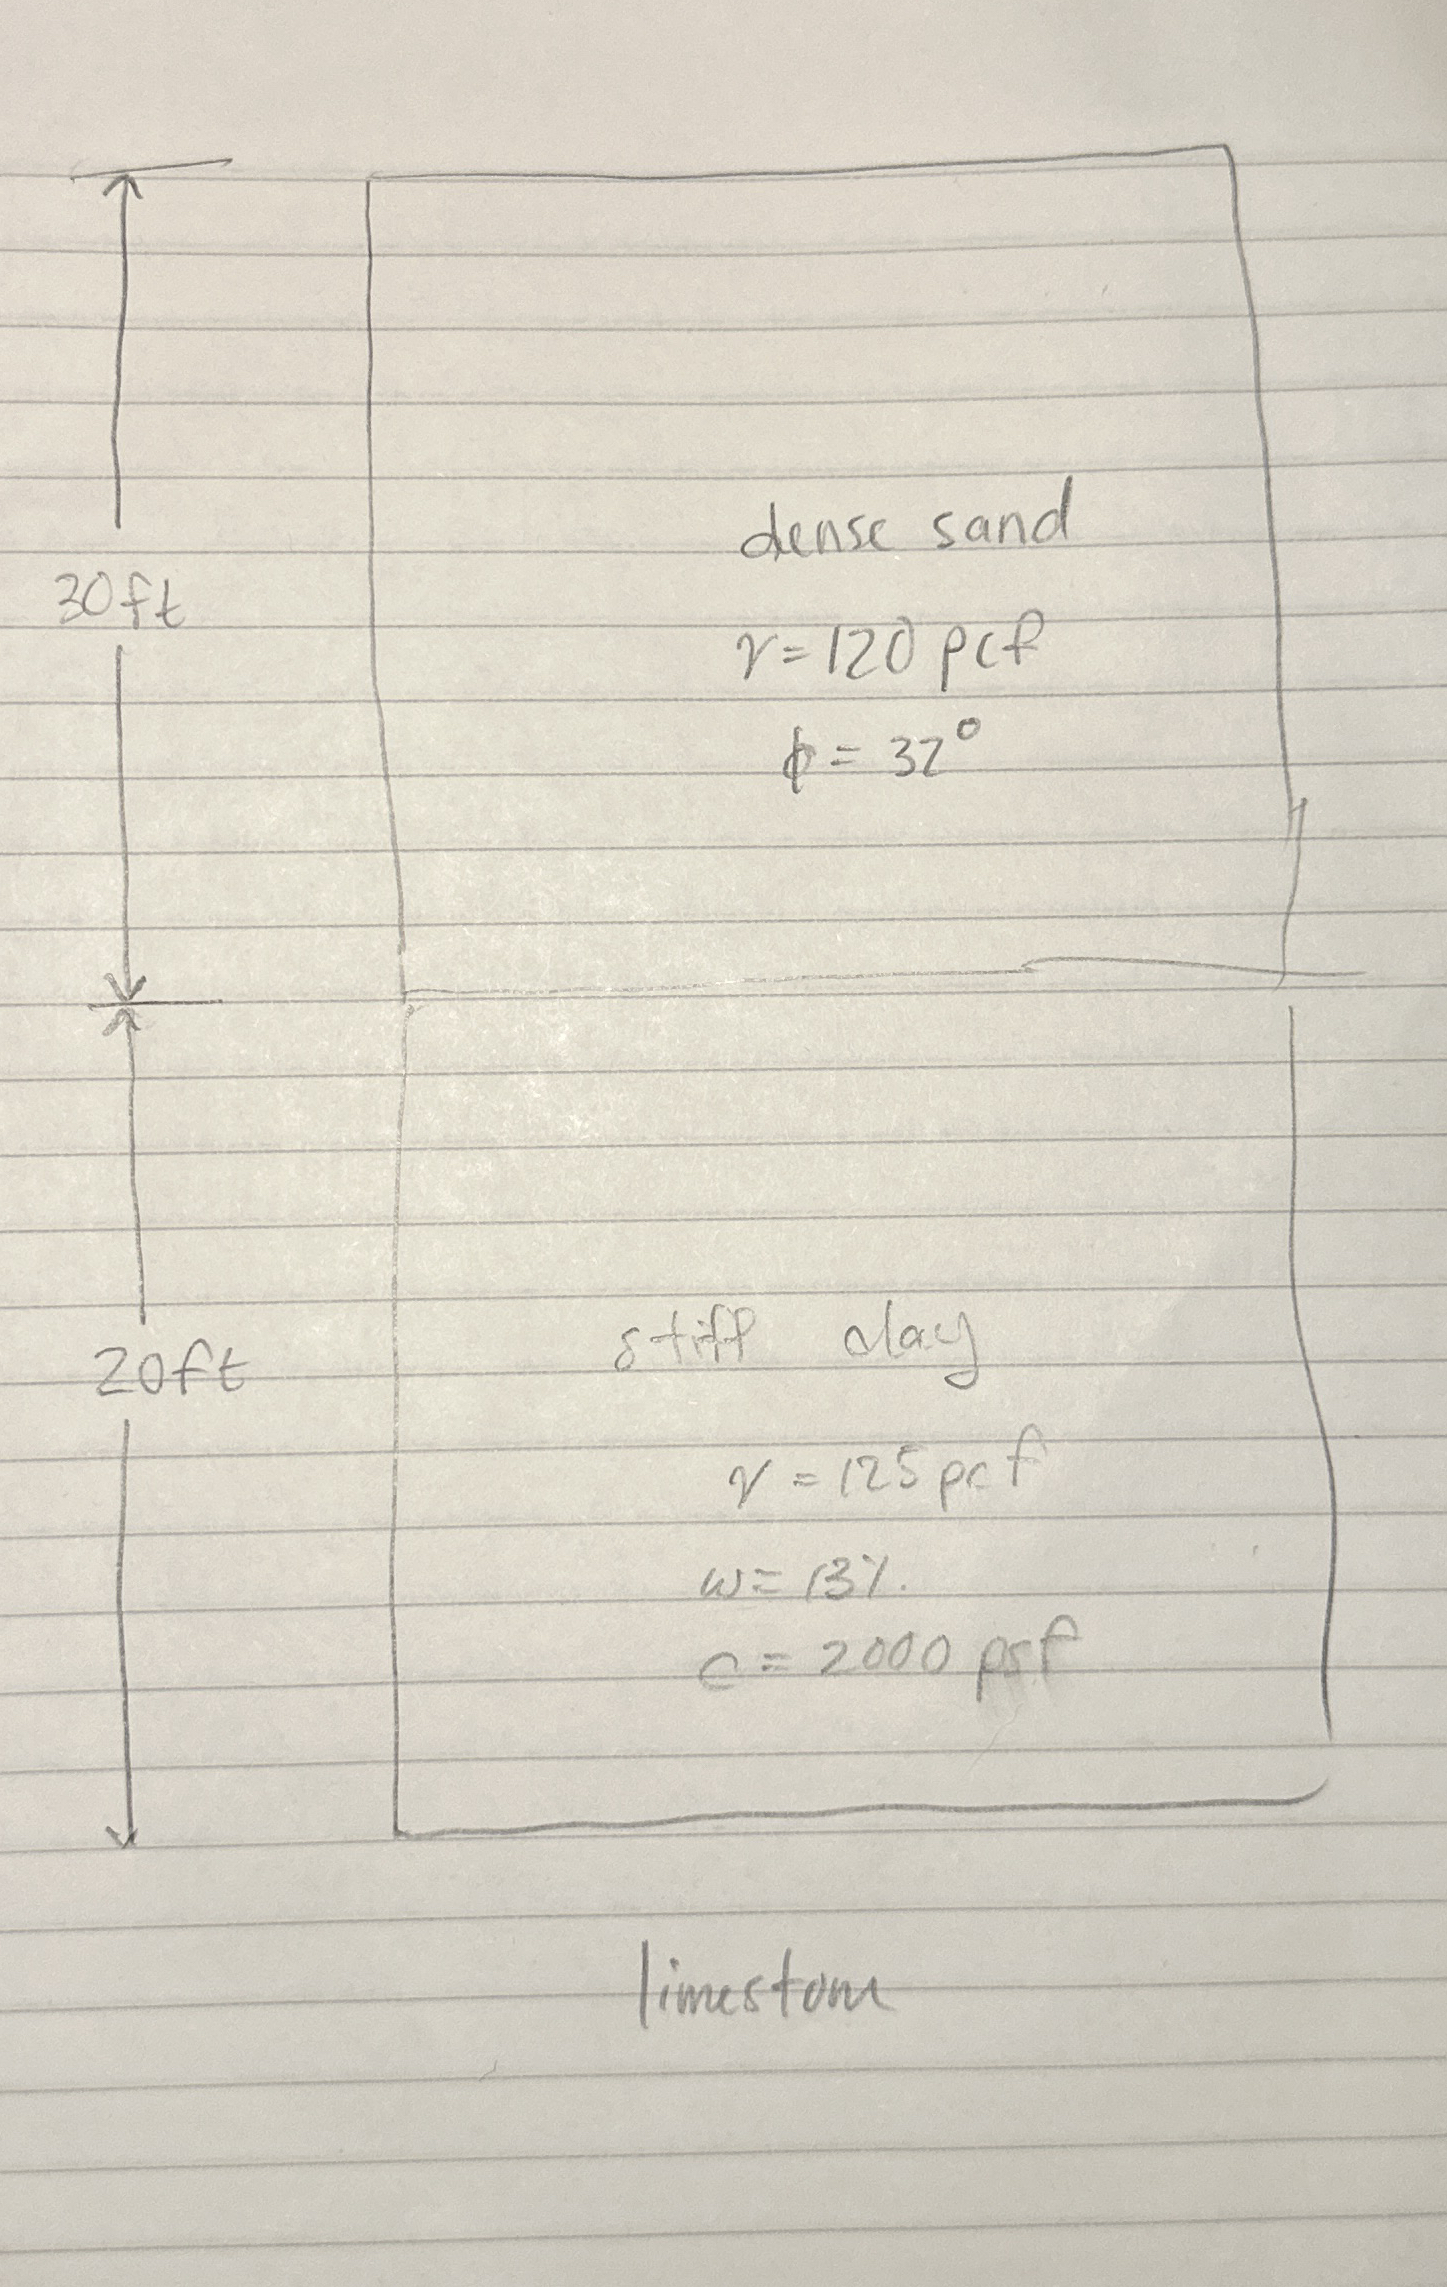 30ft
dense sand
γ=120 pcf
ϕ= 32°
20ft
stiff clay
γ=125 pcf
w= 13%.
c= 2000 psf
limestone